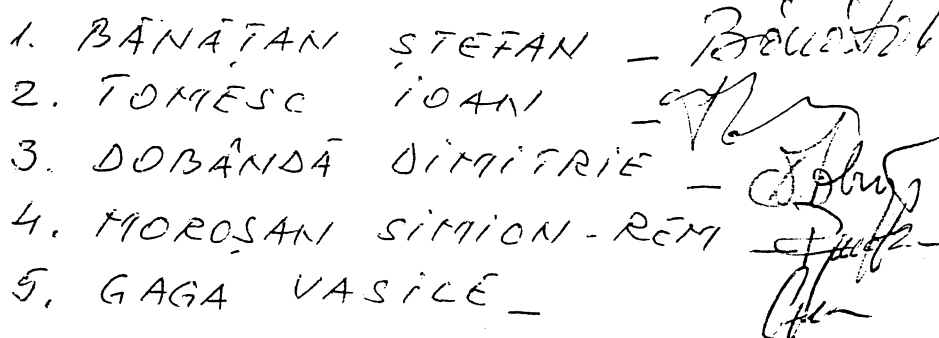 1. BĂNĂȚAN ȘTEFAN _
2. TOMESC IOAN _
3. DOBÂNDĂ DIMITRIE _
4. MOROȘAN SIMION-REM
5. GAGA VASILE _